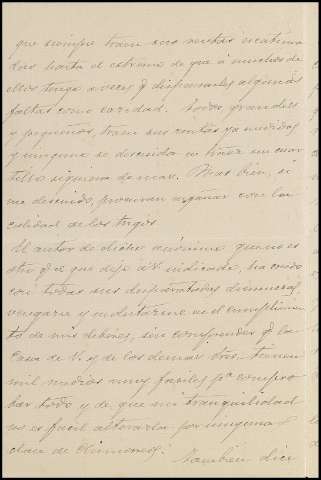 que siempre traen sus rentas escatima
das hasta el extremo de que á muchos de
ellos tengo a veces q dispensarles algunas
faltas como caridad. Todos grandes
y pequeños, traen sus rentas ya medidas
y ninguno se descuida en traer un cuar
tillo siquiera de mas. Mas bien, si
me descuido, procuran engañar con la
calidad de los trigos.
El autor de dicho anónimo que no es
otro q el que dejo á V. indicado, ha creido
con todas sus disparatadas denuncias
vengarse y molestarme en el cumplimien
to de mis deberes, sin comprender q la
Casa de V. y de los demas tienen
mil medios muy faciles pa compro
bar todo y de que mi tranquilidad
no es facil alterarla por ninguna
clase de
Tambien dice